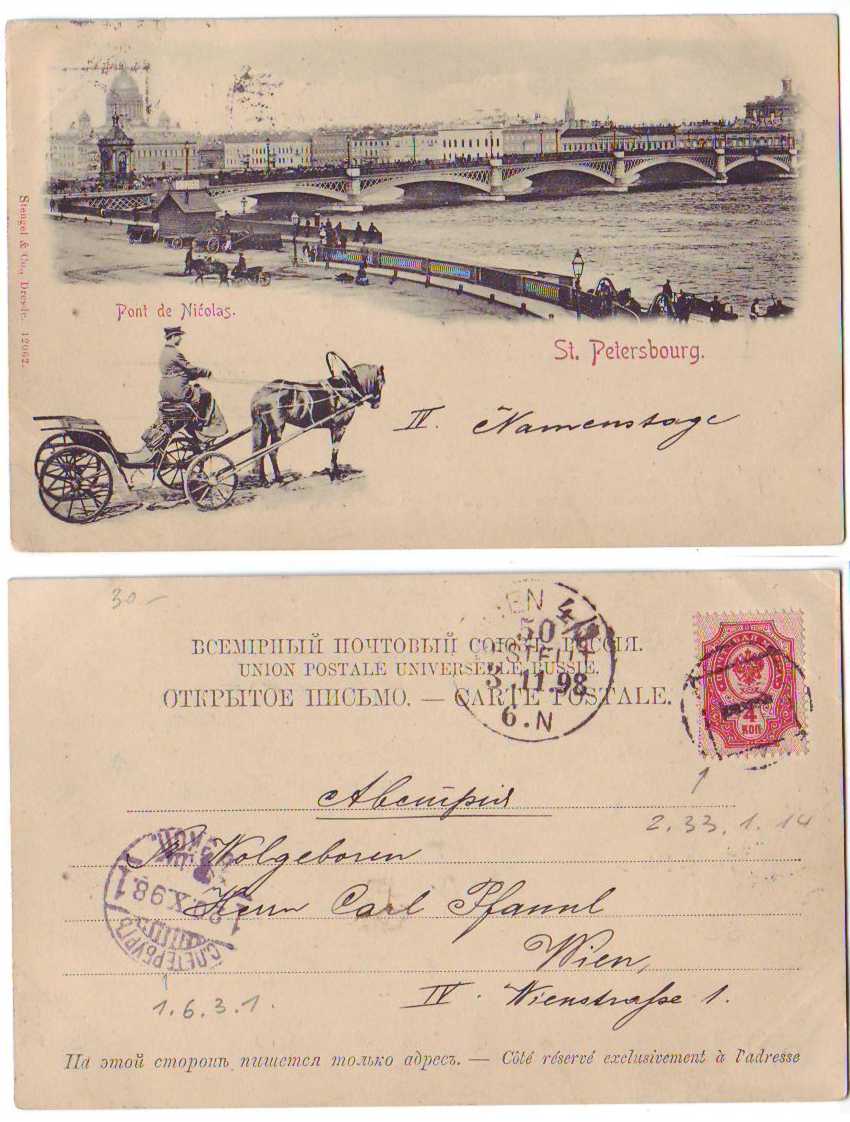 Stengel & Co., Dresde. 12062.
Pont de Nicolas.
St. Petersbourg.
II. Namenstage
30-
ВСЕМІРНЫЙ ПОЧТОВЫЙ СОЮЗЪ. РОССІЯ.
UNION POSTALE UNIVERSELLE. RUSSIE.
ОТКРЫТОЕ ПИСЬМО. — CARTE POSTALE.
4/1
50
3.11.98
6.N
ПОЧТОВАЯ МАРКА
4
КОП
Австрія
2.33.1.14
Wolgeboren
Herrn Carl Pfannl
Wien,
IV. Wienstraße 1.
1
X.98
1
С.ПЕТЕРБУРГЪ
1.6.3.1.
На этой сторонѣ пишется только адресъ. — Côté réservé exclusivement à l'adresse